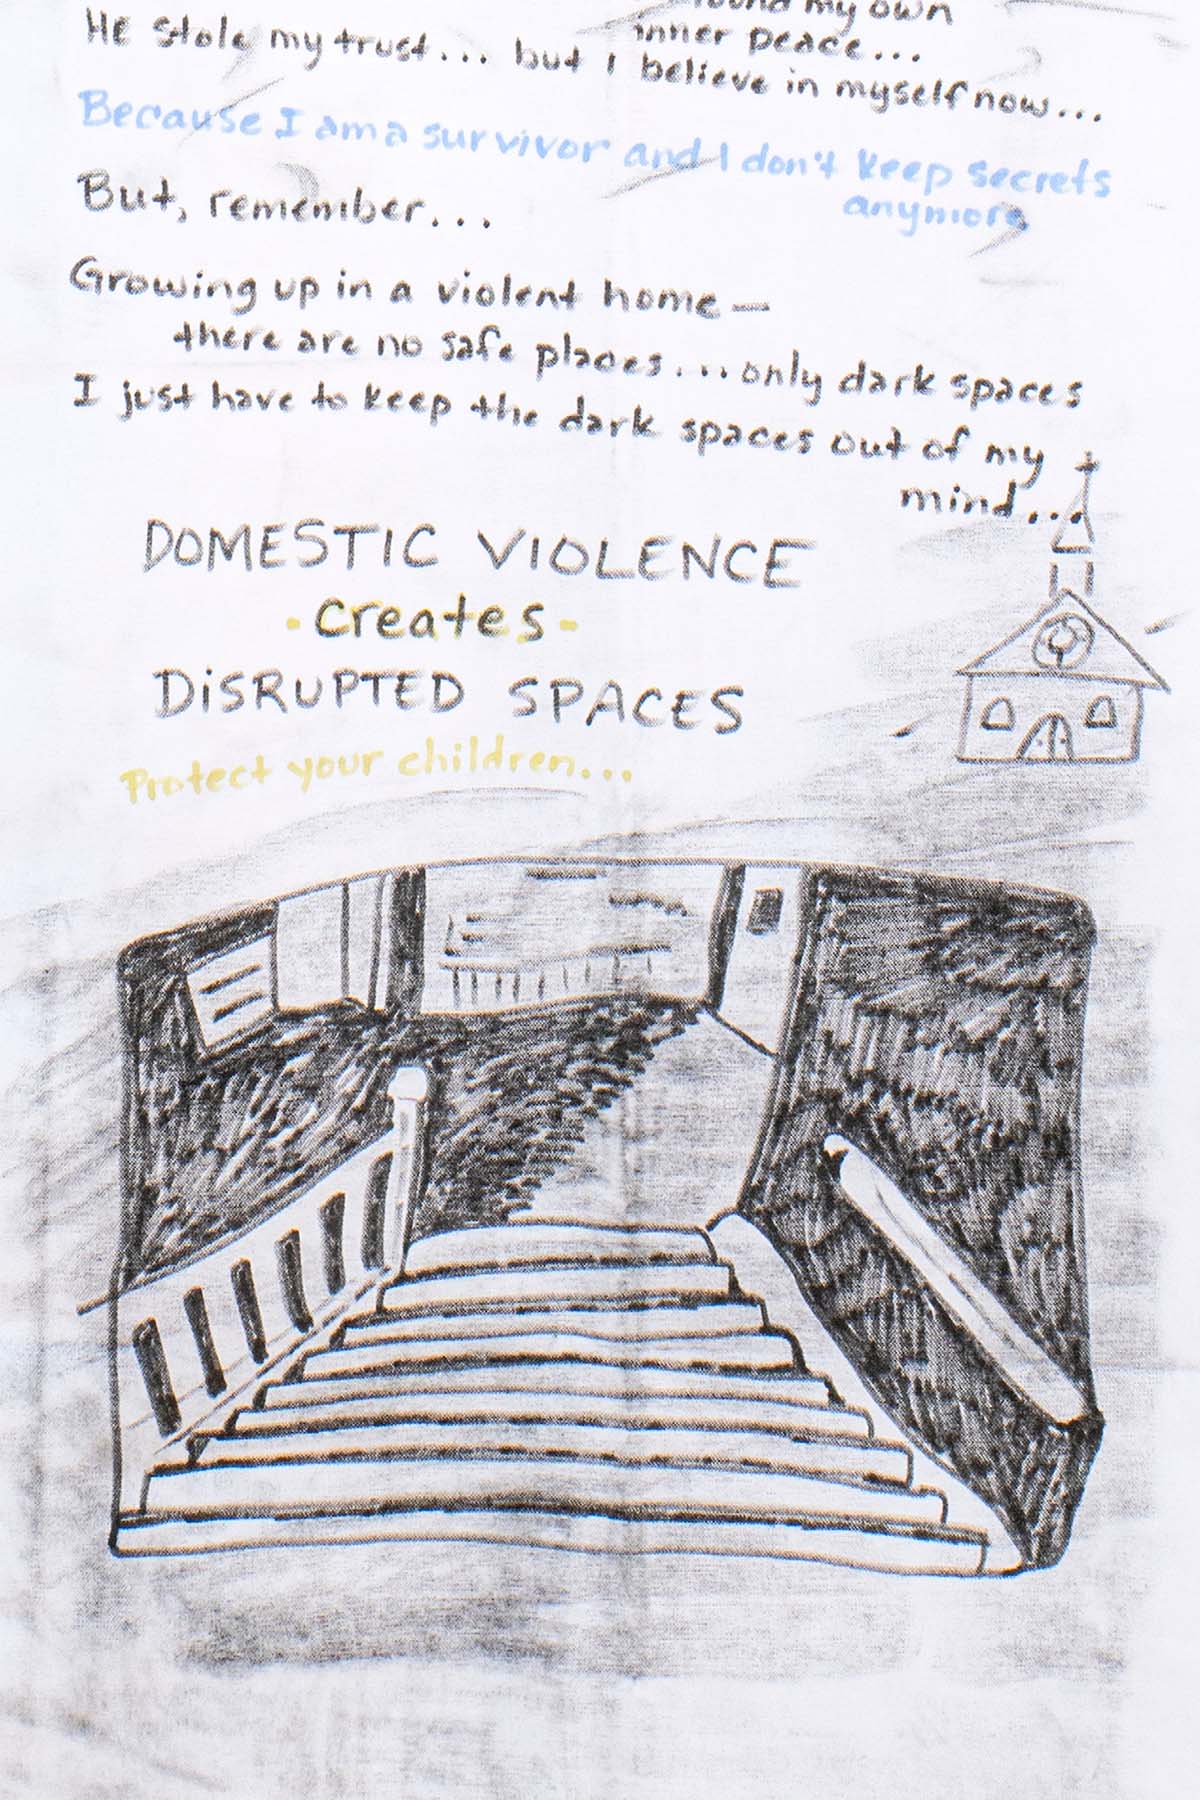 found my own
inner peace...
He stole my trust... but I believe in myself now...
Because I am a survivor and I don't keep secrets
anymore
But, remember...
Growing up in a violent home—
there are no safe places...only dark spaces
I just have to keep the dark spaces out of my
mind...
DOMESTIC VIOLENCE
-creates-
DISRUPTED SPACES
Protect your children...